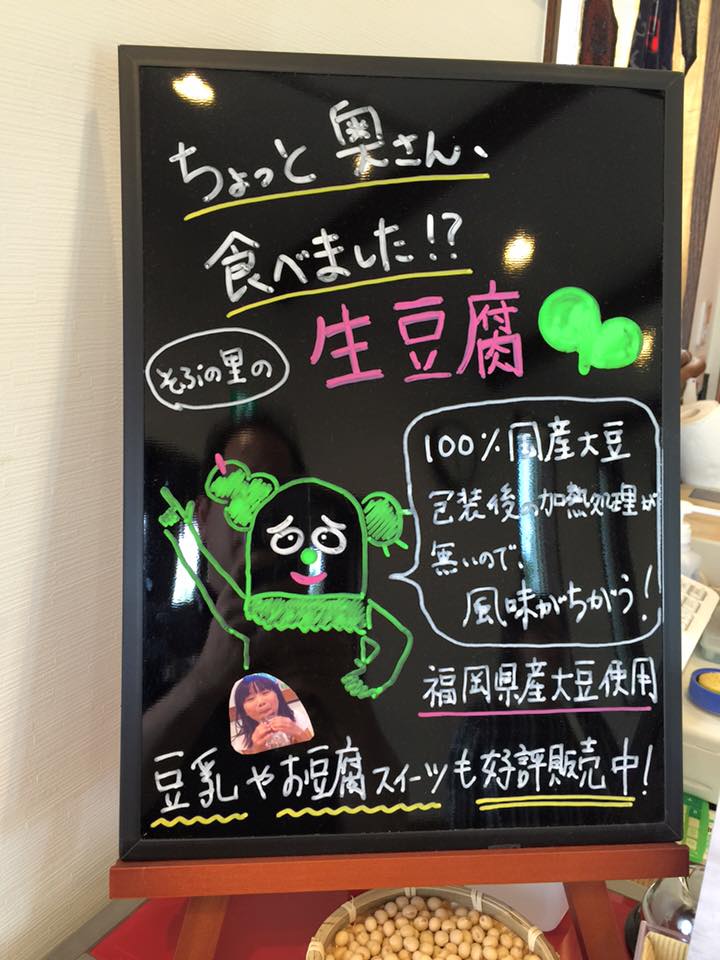 ちょっと奥さん、
食べました!?
生豆腐
100%国産大豆
包装後の加熱処理が
無いので、
風味がちがう!
福岡県産大豆使用
豆乳やお豆腐スイーツも好評販売中!